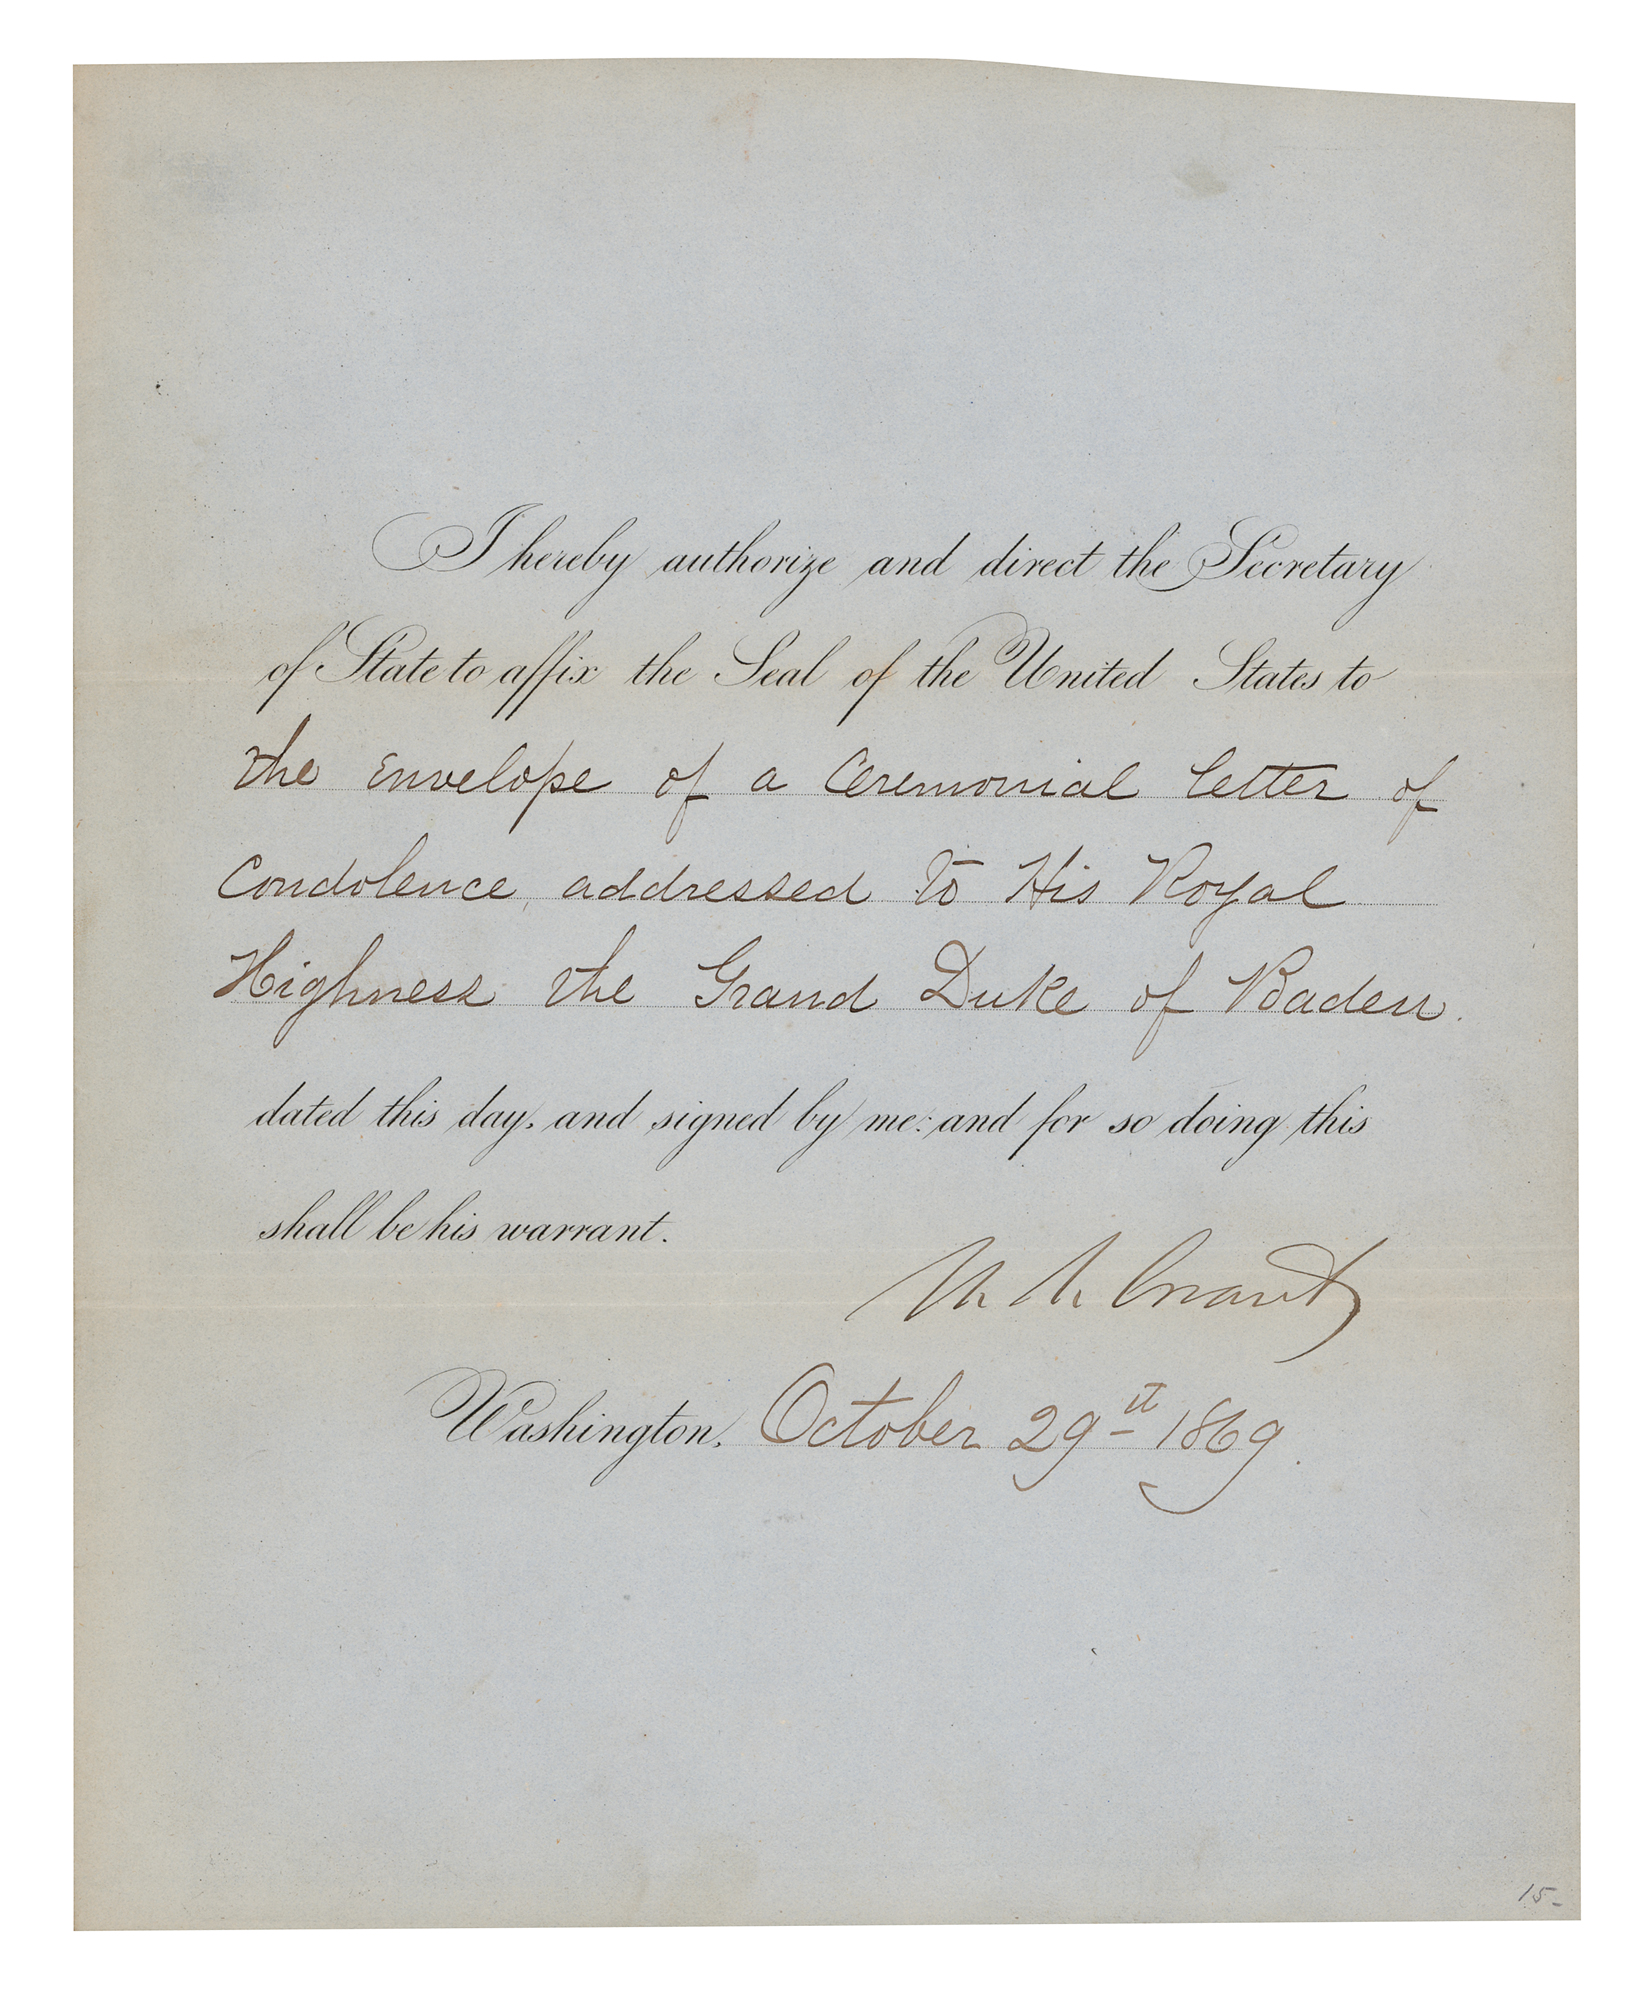 I hereby authorize and direct the Secretary
of State to affix the Seal of the United States to
the Envelope of a Ceremonial letter of
Condolence, addressed to His Royal
Highness the Grand Duke of Baden.
dated this day, and signed by me: and for so doing this
shall be his warrant.
U. S. Grant
Washington, October 29st 1869.
15-